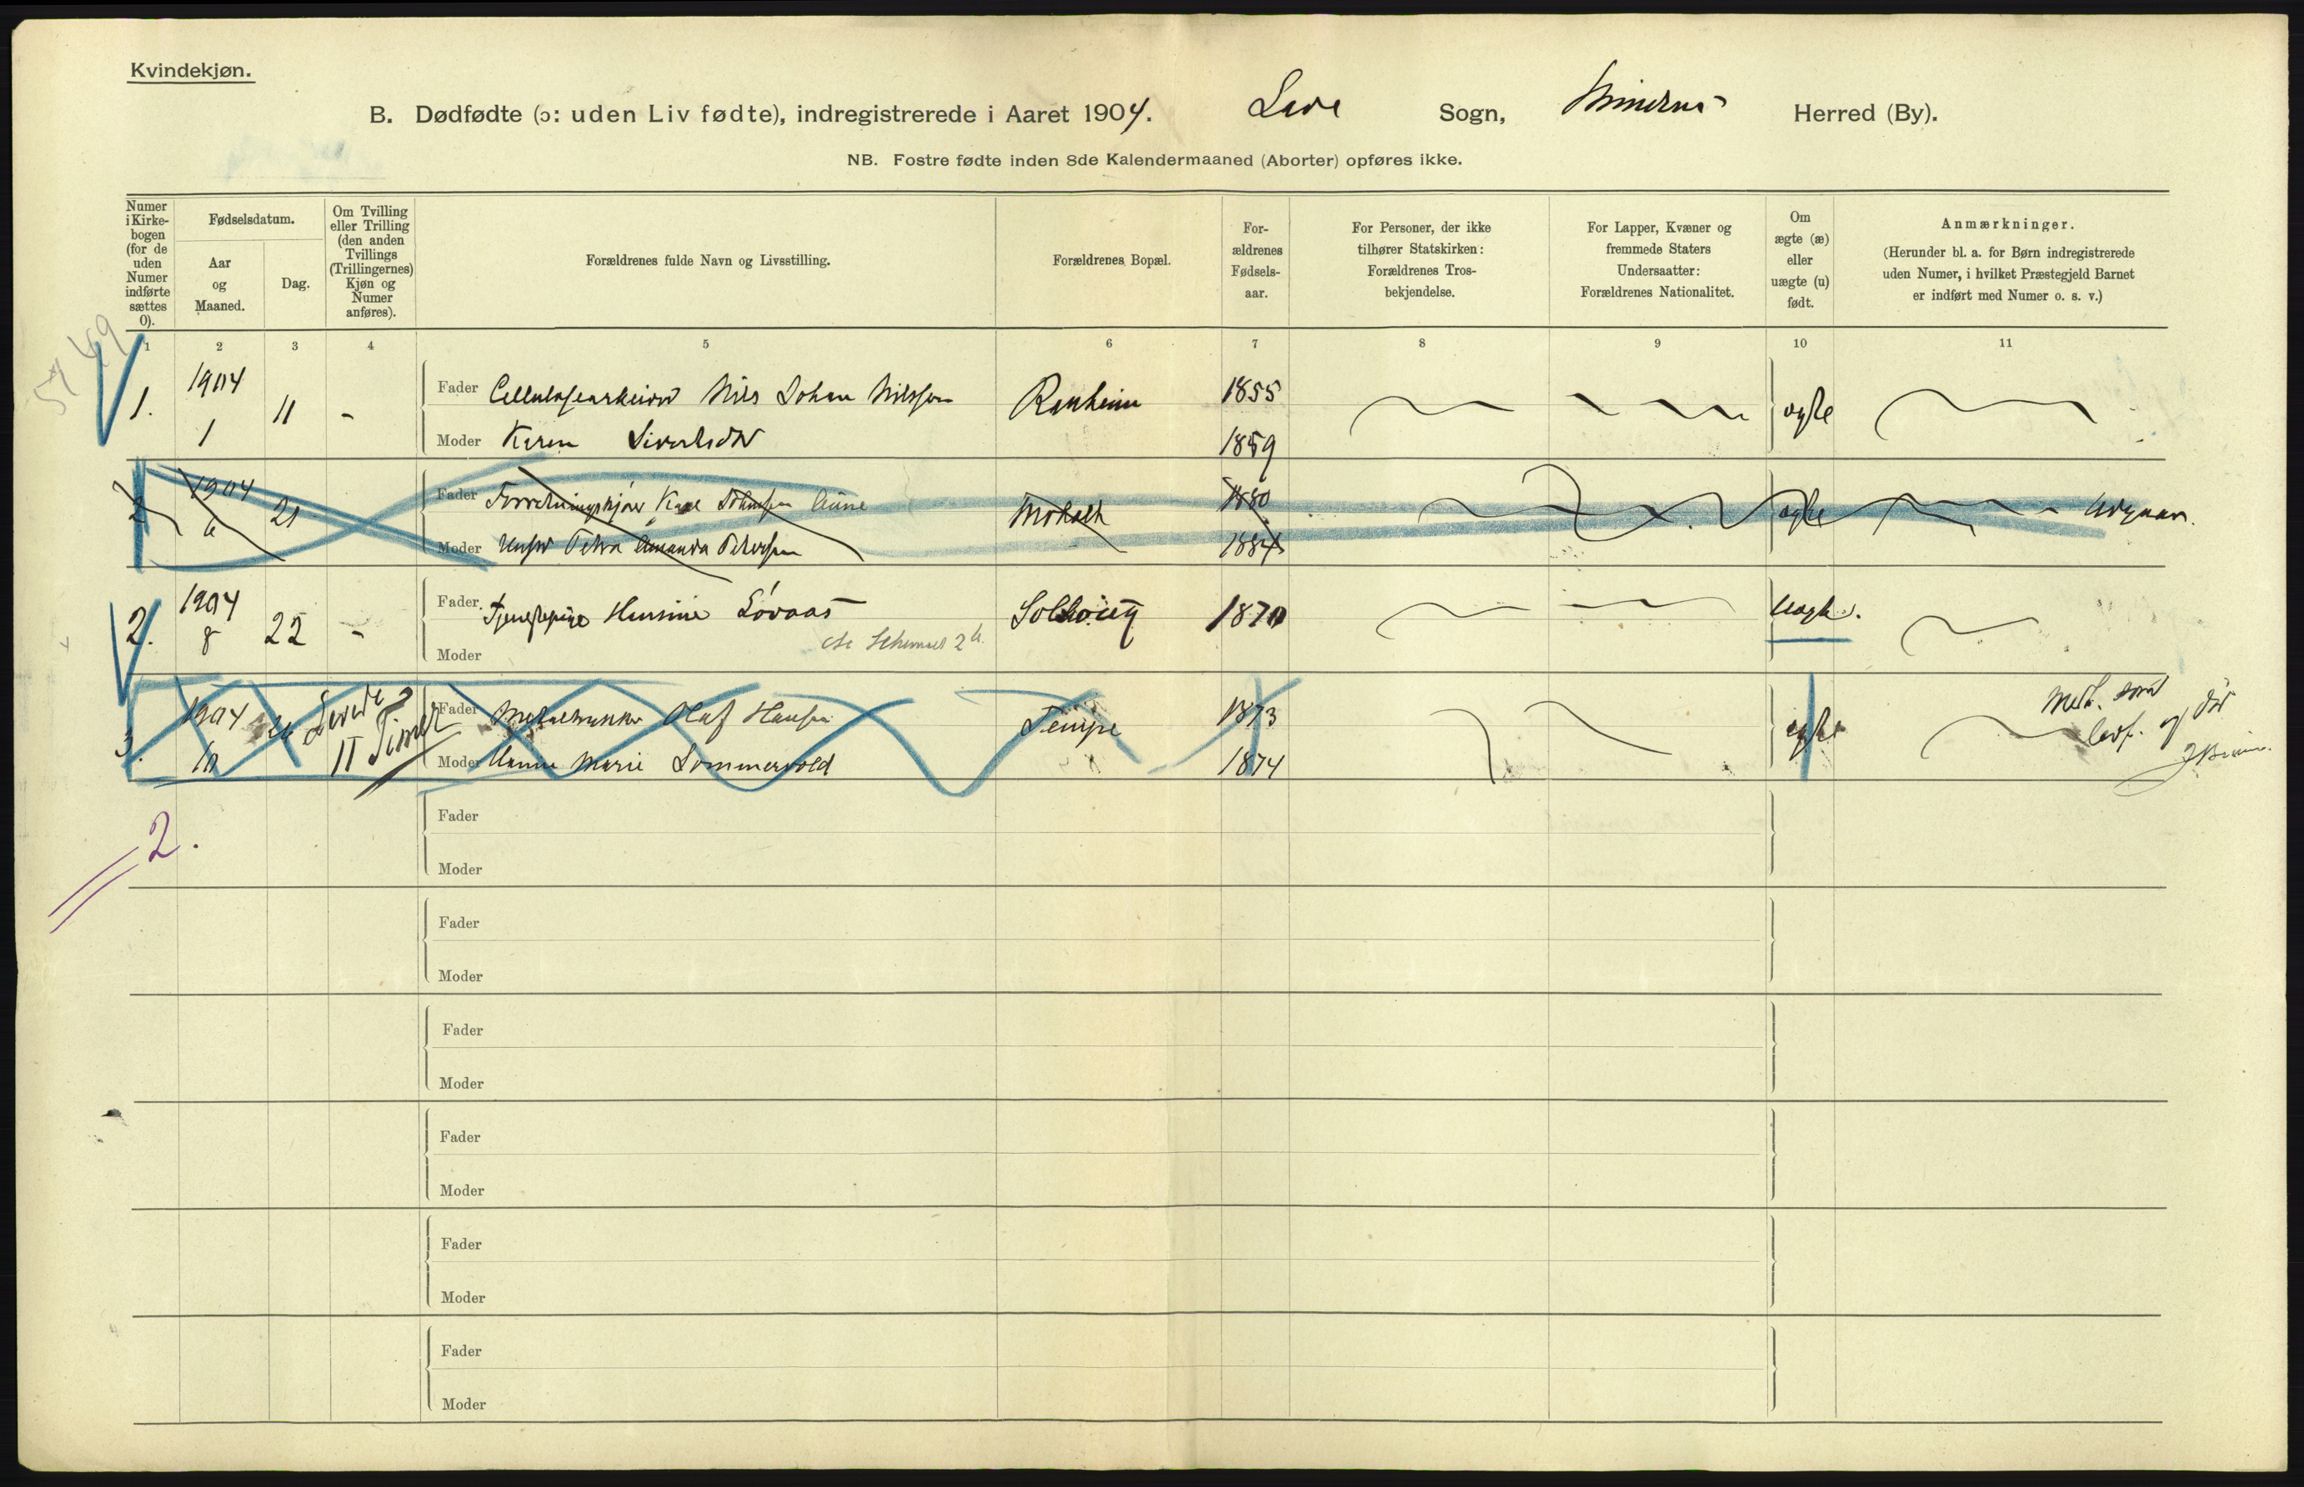 Kvindekjøn.
B. Dødfødte (ɔ: uden Liv fødte), indregistrerede i Aaret 1904. Lade Sogn, Herred (By).
NB. Fostre fødte inden 8de Kalendermaaned (Aborter) opføres ikke.
Numer i Kirkebogen (for de uden Numer indførte sættes 0).
Fødselsdatum.
Aar og Maaned.
Dag.
Om Tvilling eller Trilling (den anden Tvillings (Trillingernes) Kjøn og Numer anføres).
Forældrenes fulde Navn og Livsstilling.
Forældrenes Bopæl.
Forældrenes Fødselsaar.
For Personer, der ikke tilhører Statskirken: Forældrenes Trosbekjendelse.
For Lapper, Kvæner og fremmede Staters Undersaatter: Forældrenes Nationalitet.
Om ægte (æ) eller uægte (u) født.
Anmærkninger.
(Herunder bl. a. for Børn indregistrerede uden Numer, i hvilket Præstegjeld Barnet er indført med Numer o. s. v.)
1 2 3 4 5 6 7 8 9 10 11
1. 1904 1 11 - Fader Nils Johan Nilssen Ranheim 1855 ægte
Moder Karen 1859
2 1904 6 21 Fader Johansen Aune Moholt 1880 ægte Udgaar.
Moder Hustr Petra Amanda Petersen 1884
2. 1904 8 22 - Fader Tjenestepige Hansine Løvaas 1870 Uægte.
Moder se Schema 2
3. 1904 10 26 Levede 11 Timer Fader Olaf Hansen Tempe 1873 ægte Medt. som lev. og død
Moder Anna Marie Sommervold 1874
2.
Fader
Moder
Fader
Moder
Fader
Moder
Fader
Moder
Fader
Moder
Fader
Moder